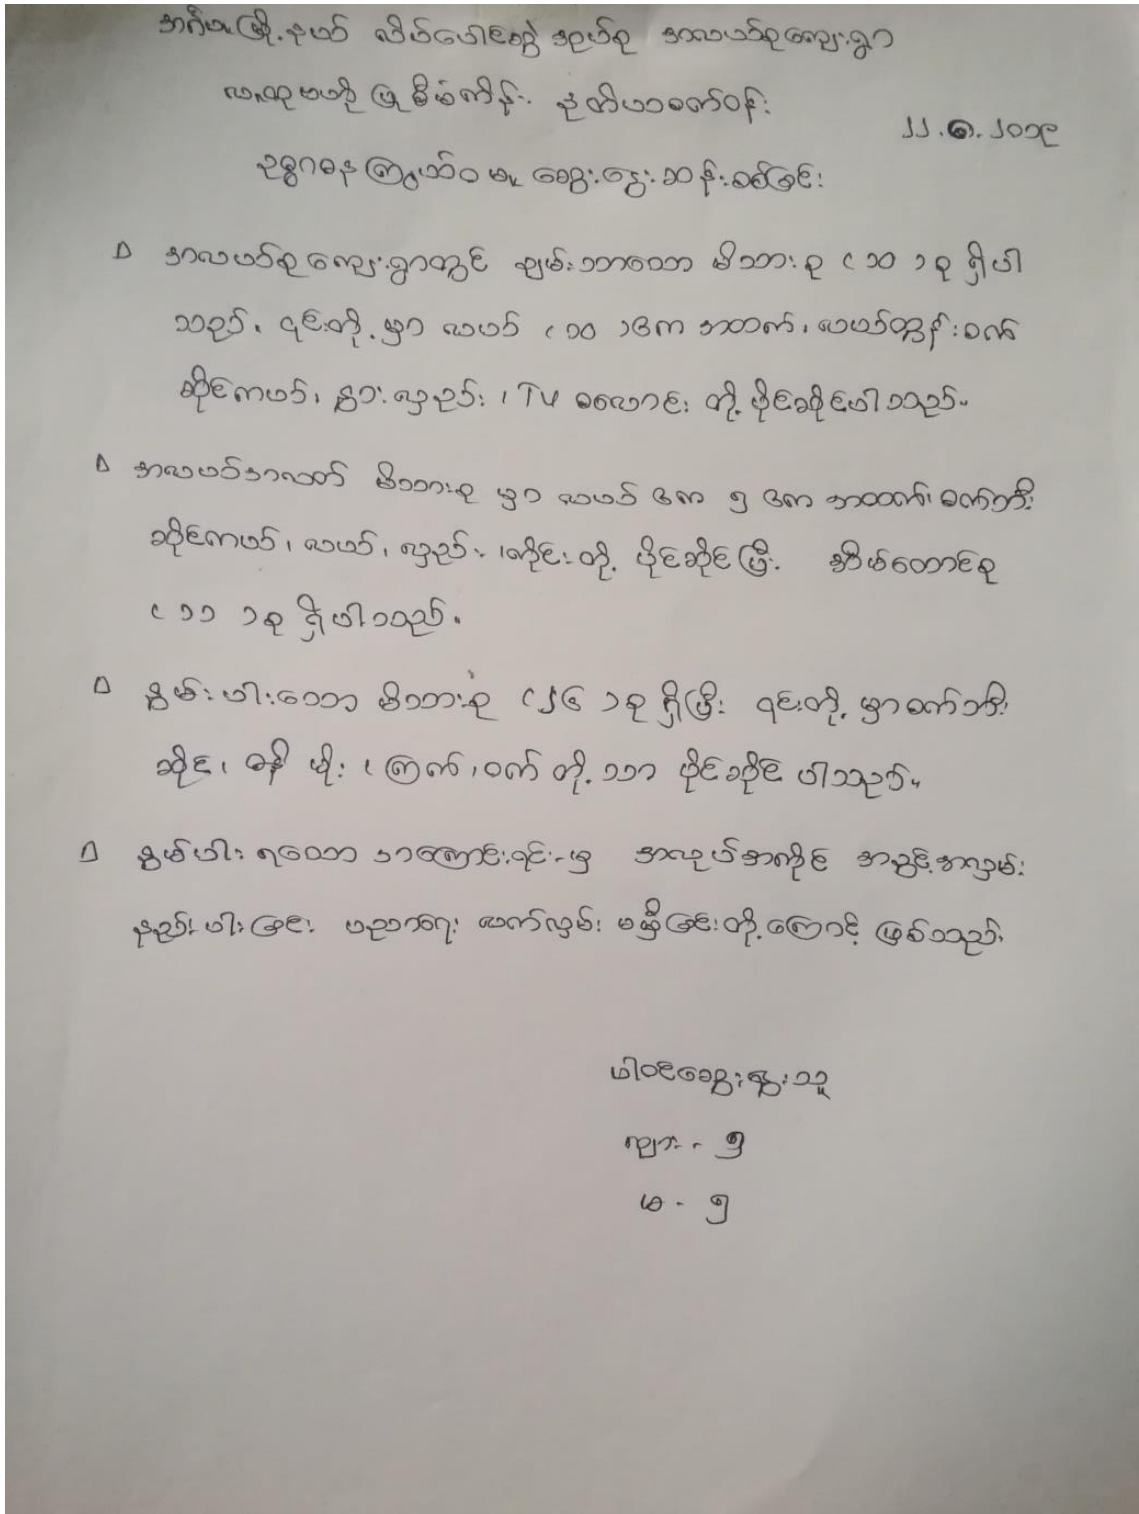 အင်္ဂပူမြို့နယ် လိပ်ပေါင်ခွဲ အုပ်စု အလယ်စုကျေးရွာ
လူထုဗဟိုပြု စီမံကိန်း နုတိယစက်ဝန်း
၂၂.၈.၂၀၁၉
ဥစ္စာဓန ကြွယ်ဝမှု ဆွေးနွေးဆန်းစစ်ခြင်း
အလယ်စုကျေးရွာတွင် ချမ်းသာသော မိသားစု (၁၀) စု ရှိပါ
သည်၊ ၎င်းတို့မှာ လယ် (၁၀) ဧက အထက်၊ လယ်ထွန်းစက်
ဆိုင်ကယ်၊ နွား၊ လှည်း၊ TV စလောင်း တို့ ပိုင်ဆိုင်ပါသည်။
အလယ်အလတ် မိသားစု မှာ လယ် ဧက ၅ ဧက အထက်၊ စက်ဘီး
ဆိုင်ကယ်၊ လယ်၊ လှည်း၊ ကိုင်းတို့ ပိုင်ဆိုင်ပြီး အိမ်ထောင်စု
(၁၁) စု ရှိပါသည်။
နွမ်းပါးသော မိသားစု (၂၆) စု ရှိပြီး ၎င်းတို့မှာ စက်ဘီး
ဆိုင်၊ ဓနိမိုး၊ ကြက်၊ ဝက် တို့သာ ပိုင်ဆိုင်ပါသည်။
နွမ်ပါး ရသော အကြောင်းရင်း-မှ အလုပ်အကိုင် အခွင့်အလှမ်း
နည်းပါးခြင်း ပညာရေး လက်လှမ်း မမှီခြင်းတို့ကြောင့် ဖြစ်သည်
ပါဝင်ဆွေးနွေးသူ
ကျား - ၅
မ - ၅